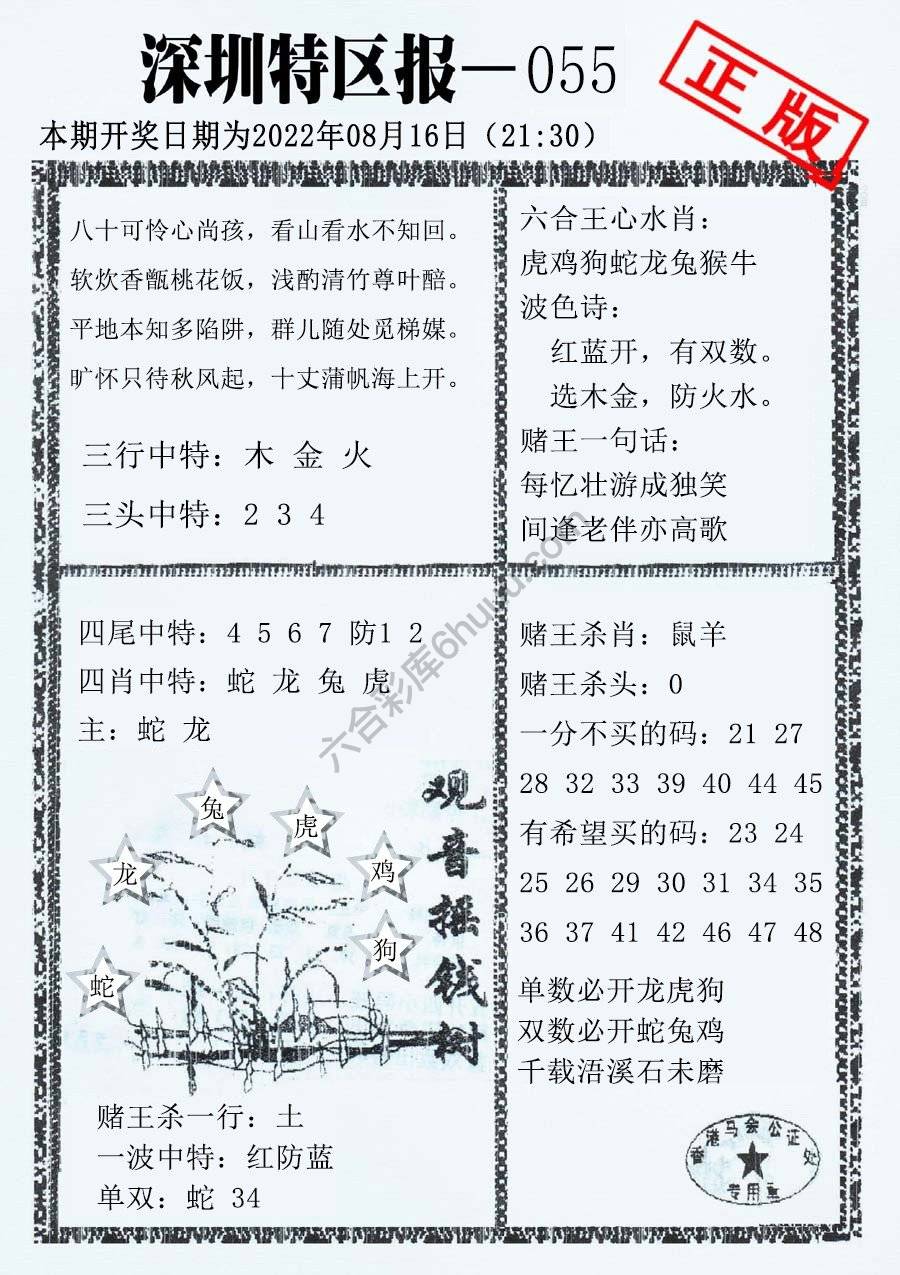 深圳特区报—055
正版
本期开奖日期为2022年08月16日（21:30）
八十可怜心尚孩，看山看水不知回。
软炊香甑桃花饭，浅酌清竹尊叶醅。
平地本知多陷阱，群儿随处觅梯媒。
旷怀只待秋风起，十丈蒲帆海上开。
三行中特：木 金 火
三头中特：2 3 4
六合王心水肖：
虎鸡狗蛇龙兔猴牛
波色诗：
红蓝开，有双数。
选木金，防火水。
赌王一句话：
每忆壮游成独笑
间逢老伴亦高歌
四尾中特：4 5 6 7 防1 2
四肖中特：蛇 龙 兔 虎
主：蛇 龙
兔
虎
龙
鸡
狗
蛇
观音摇钱树
赌王杀一行：土
一波中特：红防蓝
单双：蛇 34
赌王杀肖：鼠羊
赌王杀头：0
一分不买的码：21 27
28 32 33 39 40 44 45
有希望买的码：23 24
25 26 29 30 31 34 35
36 37 41 42 46 47 48
单数必开龙虎狗
双数必开蛇兔鸡
千载浯溪石未磨
香港马会公证处
专用章
六合彩库6huuu.com